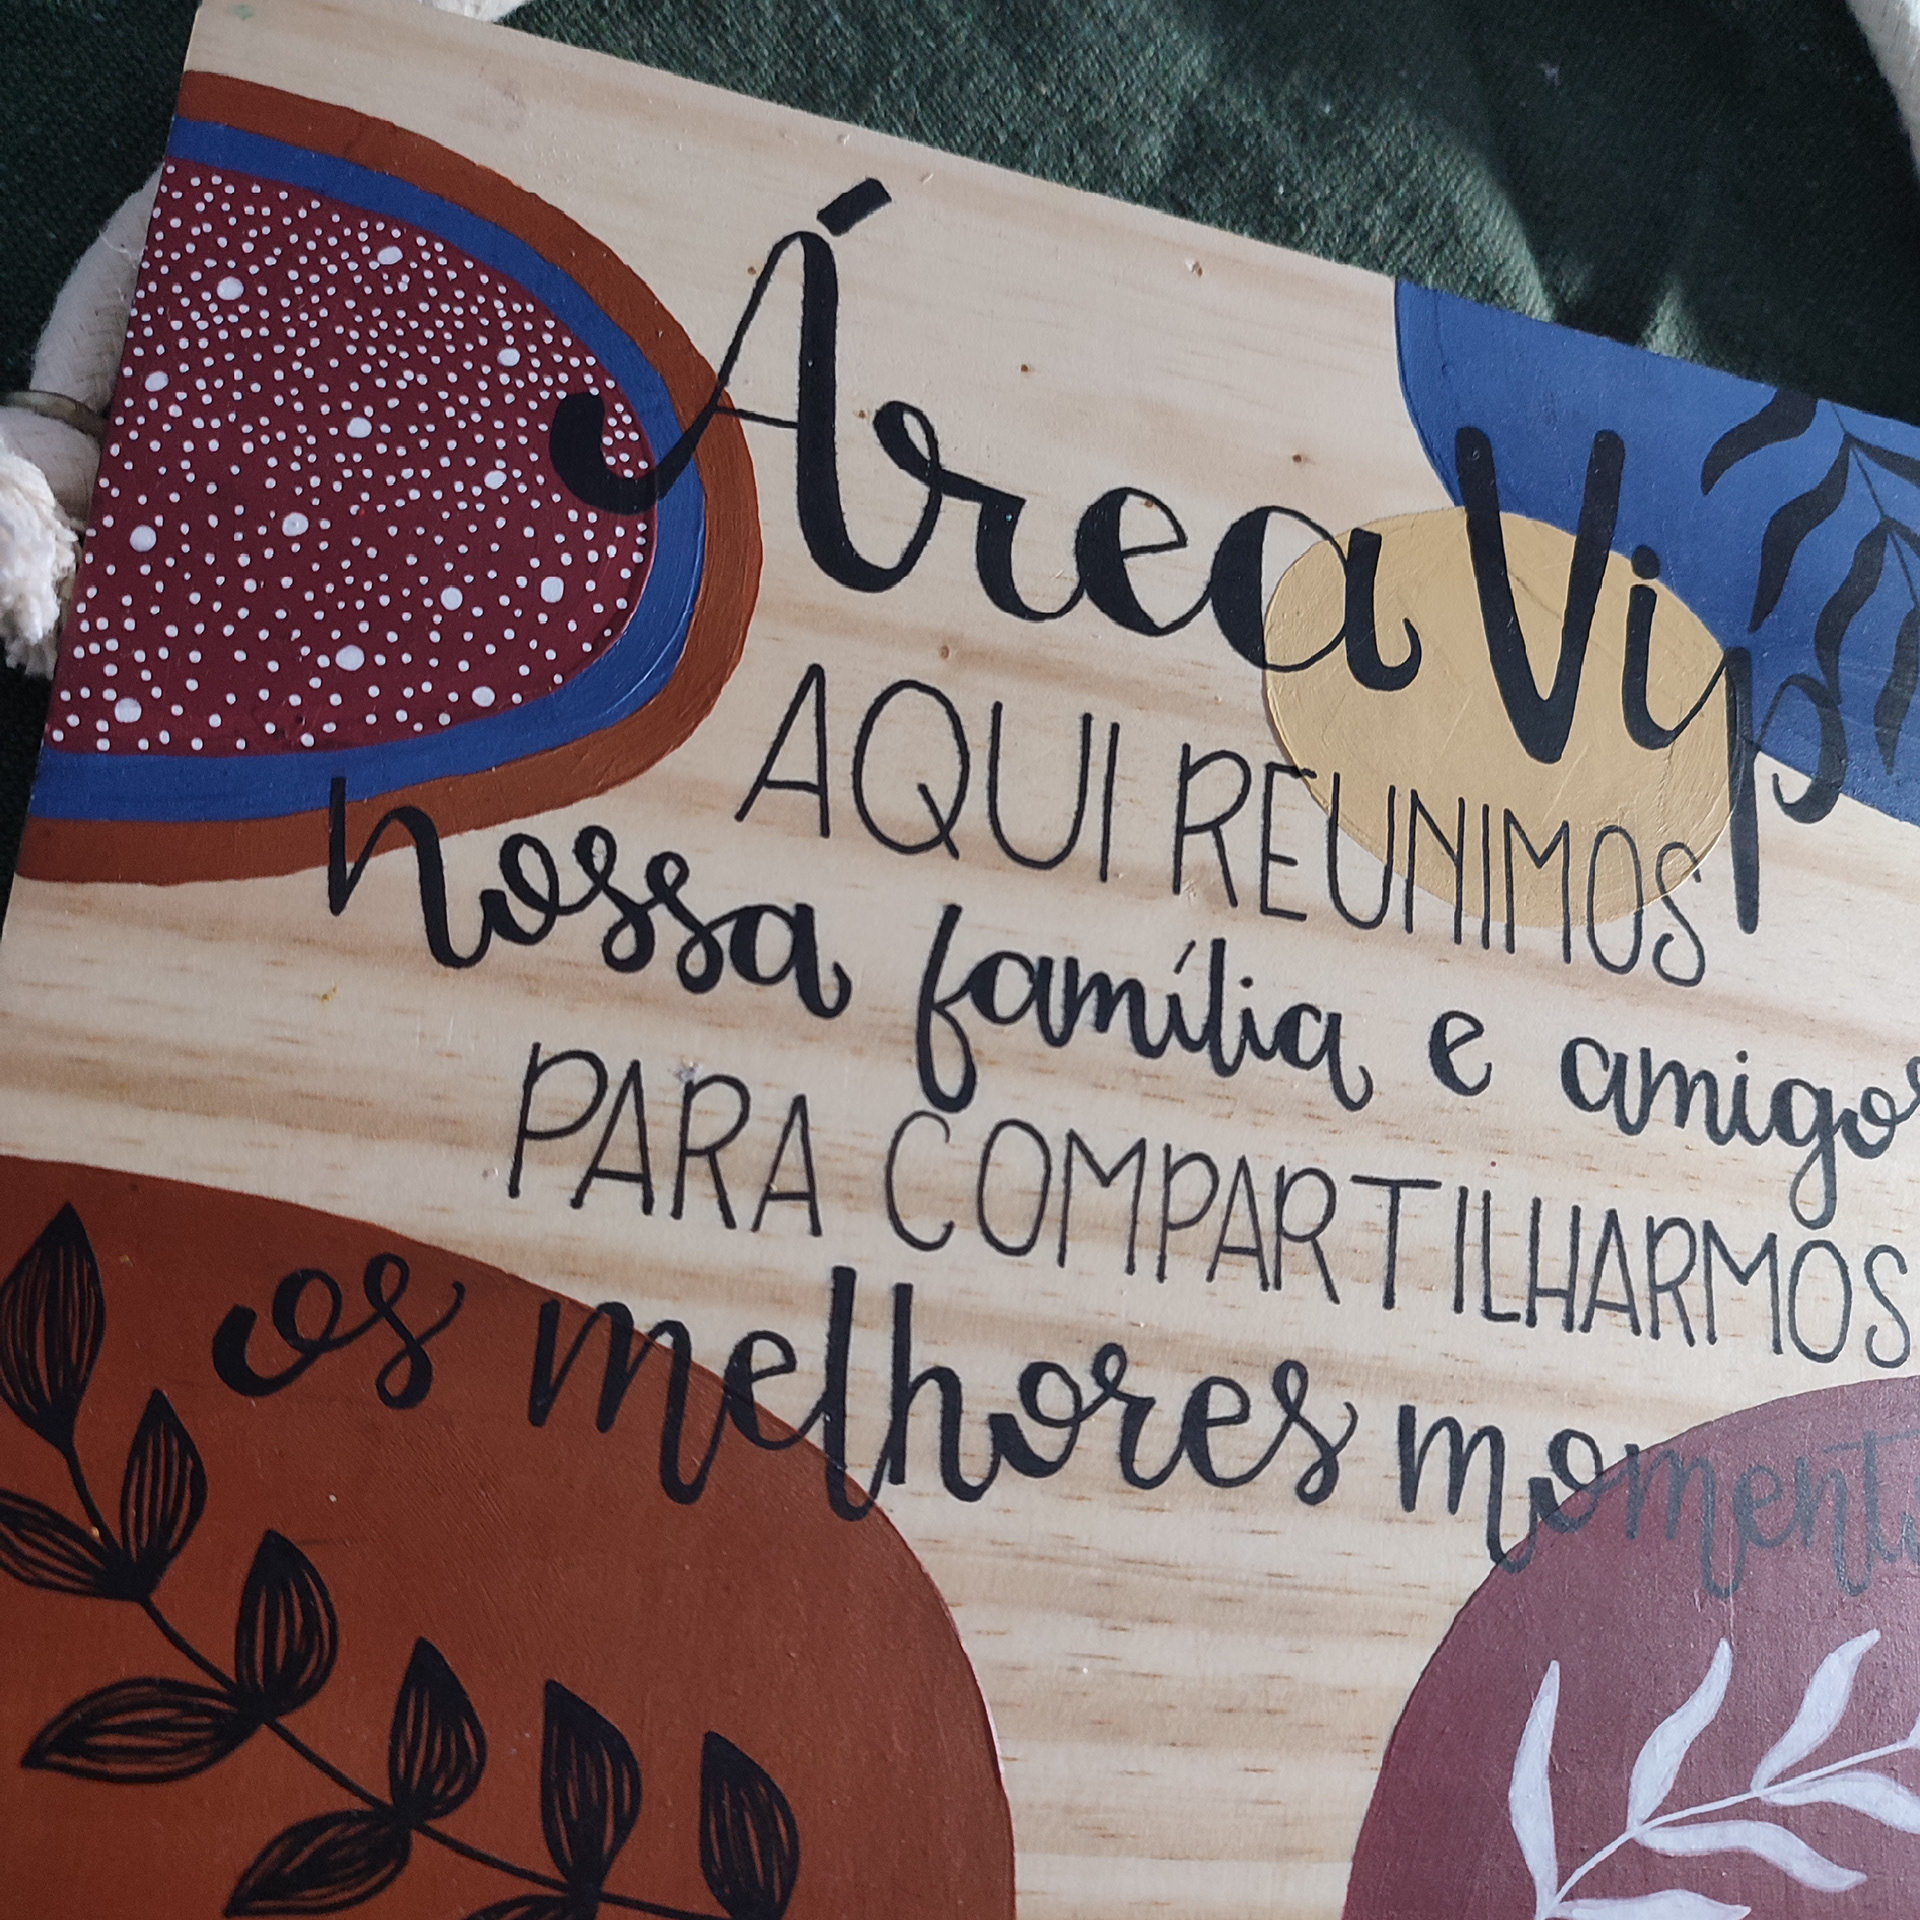 Área Vip
AQUI REUNIMOS
nossa família e amigos
PARA COMPARTILHARMOS
os melhores moment